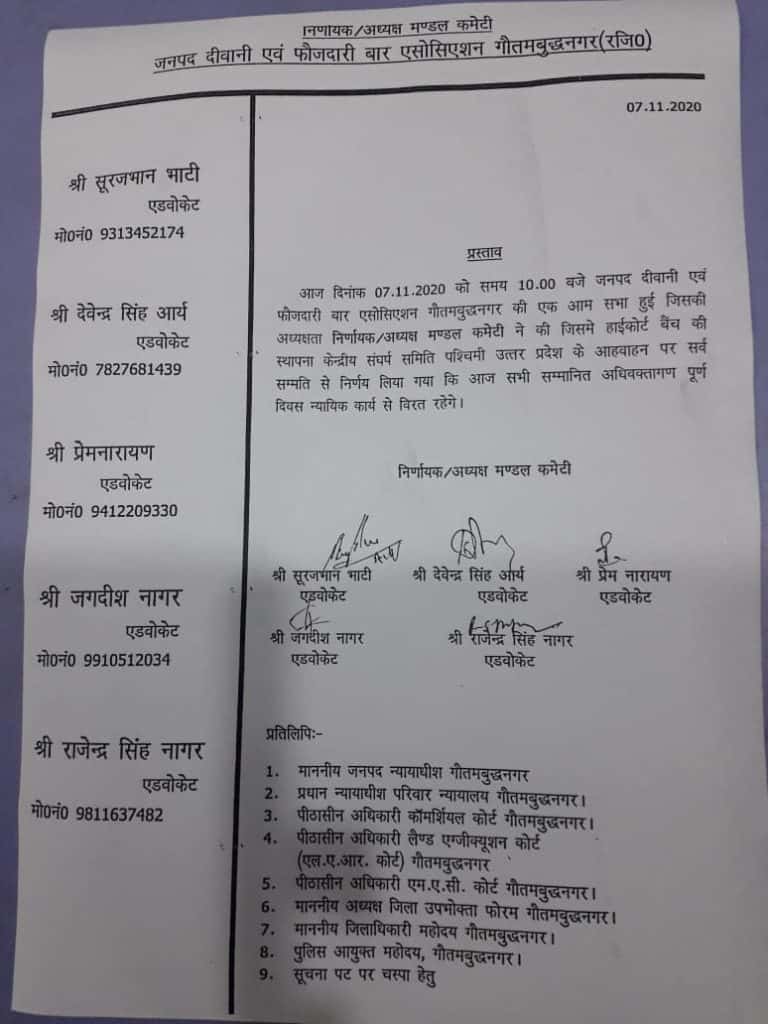 निर्णायक/अध्यक्ष मण्डल कमेटी
जनपद दीवानी एवं फौजदारी बार एसोसिएशन गौतमबुद्धनगर(रजि0)
07.11.2020
श्री सूरजभान भाटी
एडवोकेट
मो0नं0 9313452174
श्री देवेन्द्र सिंह आर्य
एडवोकेट
मो0नं0 7827681439
श्री प्रेमनारायण
एडवोकेट
मो0नं0 9412209330
श्री जगदीश नागर
एडवोकेट
मो0नं0 9910512034
श्री राजेन्द्र सिंह नागर
एडवोकेट
मो0नं0 9811637482
प्रस्ताव
आज दिनांक 07.11.2020 को समय 10.00 बजे जनपद दीवानी एवं
फौजदारी बार एसोसिएशन गौतमबुद्धनगर की एक आम सभा हुई जिसकी
अध्यक्षता निर्णायक/अध्यक्ष मण्डल कमेटी ने की जिसमे हाईकोर्ट बैंच की
स्थापना केन्द्रीय संघर्ष समिति पश्चिमी उत्तर प्रदेश के आहवाहन पर सर्व
सम्मति से निर्णय लिया गया कि आज सभी सम्मानित अधिवक्तागण पूर्ण
दिवस न्यायिक कार्य से विरत रहेगे।
निर्णायक/अध्यक्ष मण्डल कमेटी
श्री सूरजभान भाटी श्री देवेन्द्र सिंह आर्य श्री प्रेम नारायण
एडवोकेट एडवोकेट एडवोकेट
श्री जगदीश नागर श्री राजेन्द्र सिंह नागर
एडवोकेट एडवोकेट
प्रतिलिपिः-
1. माननीय जनपद न्यायाधीश गौतमबुद्धनगर
2. प्रधान न्यायाधीश परिवार न्यायालय गौतमबुद्धनगर।
3. पीठासीन अधिकारी कॉमर्शियल कोर्ट गौतमबुद्धनगर।
4. पीठासीन अधिकारी लैण्ड एग्जीक्यूशन कोर्ट
(एल.ए.आर. कोर्ट) गौतमबुद्धनगर
5. पीठासीन अधिकारी एम.ए.सी. कोर्ट गौतमबुद्धनगर।
6. माननीय अध्यक्ष जिला उपभोक्ता फोरम गौतमबुद्धनगर।
7. माननीय जिलाधिकारी महोदय गौतमबुद्धनगर।
8. पुलिस आयुक्त महोदय, गौतमबुद्धनगर।
9. सूचना पट पर चस्पा हेतु